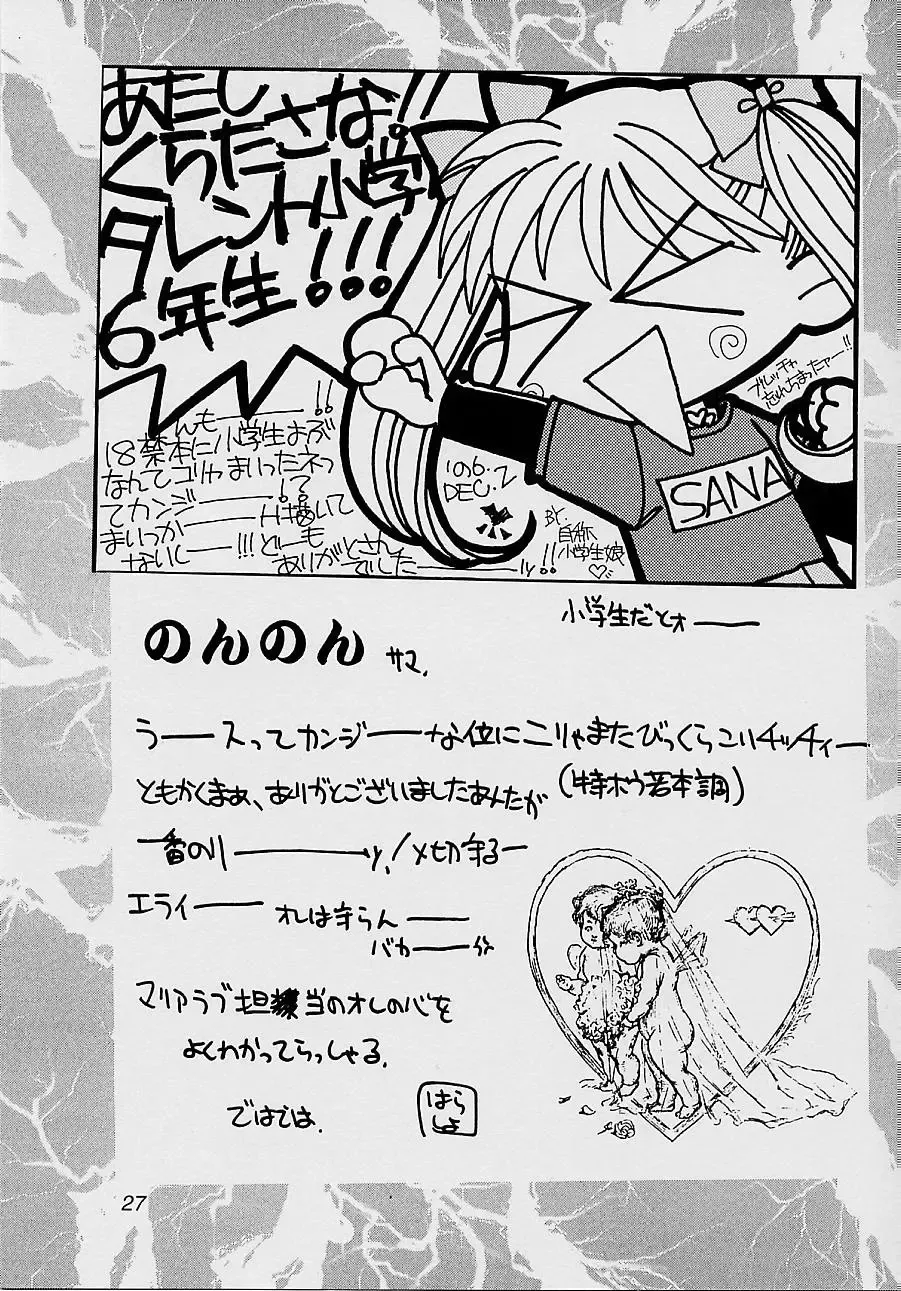 あたし
くらたさな!!
タレント小学
6年生!!!
んもー!!
18禁本に小学生
なんてコリャまいったネっ
てカンジー!?
まいっか
ないしー!!!どーも
ありがとさん
でしたーッ!!
'96.
DEC.2
BY
自称
小学生娘
忘れちまったァー!!
SANA
小学生だとォー
のんのん サマ.
うースってカンジーな位にこりゃまたびっくらこいチッチィー
ともかくまぁ、ありがとございましたあんたが
(特ボウ若本調)
一番のりーッ!〆切守るー
エライー オレは守らんー
バカー
マリアラブ担当のオレの心を
よくわかってらっしゃる.
ではでは.
はら
しょ
27